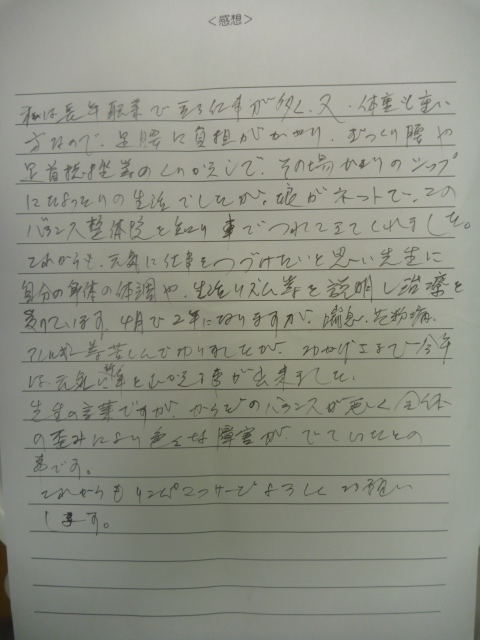 <感想>
私は長年職業で立つ仕事が多く、又、体重も重い
方なので、足腰に負担がかかり、ぎっくり腰や
足首捻挫等のくりかえしで、その場かぎりのシップ
にたよったりの生活でしたが、娘がネットで、この
バランス整体院を知り車でつれて来てくれました。
これからも、元気に仕事をつづけたいと思い先生に
自分の身体の体調や、生活リズム等を説明し治療を
受けています。4月で2年になりますが、喘息、花粉病、
アレルギー等苦しんでおりましたが、おかげさまで今年
は、元気に新年をむかえる事が出来ました。
先生の言葉ですが、からだのバランスが悪く全体
の歪みにより色々な障害が、でていたとの
事です。
これからも よろしくお願い
します。